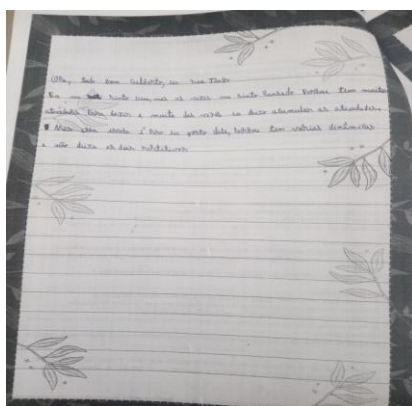 Olá, tudo bem Gilberto, eu sou Tiago
Eu me sinto bem, mas as vezes me sinto Cansado Porque tem muita
atividade Para fazer e muita das vezes eu deixo acumular as atividades.
Mas essa escola é boa eu gosto dela, Porque tem várias dinâmicas
e não deixa as aulas repetitivas